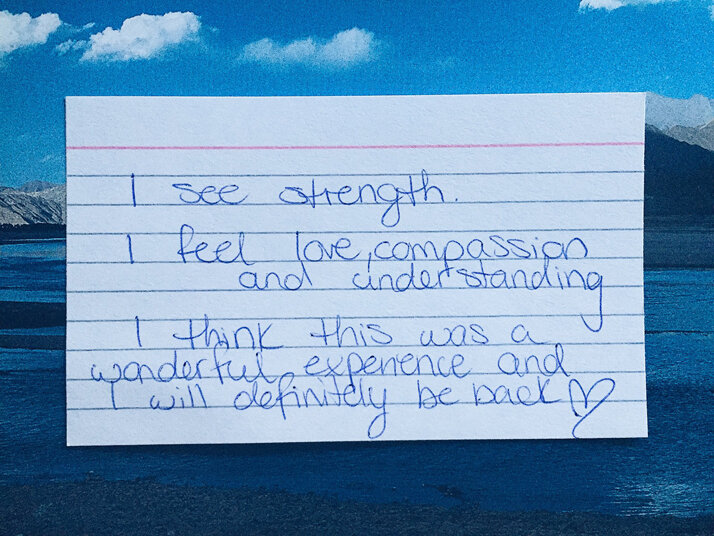 I see strength.
I feel love, compassion
and understanding
I think this was a
wonderful experience and
I will definitely be back ♡